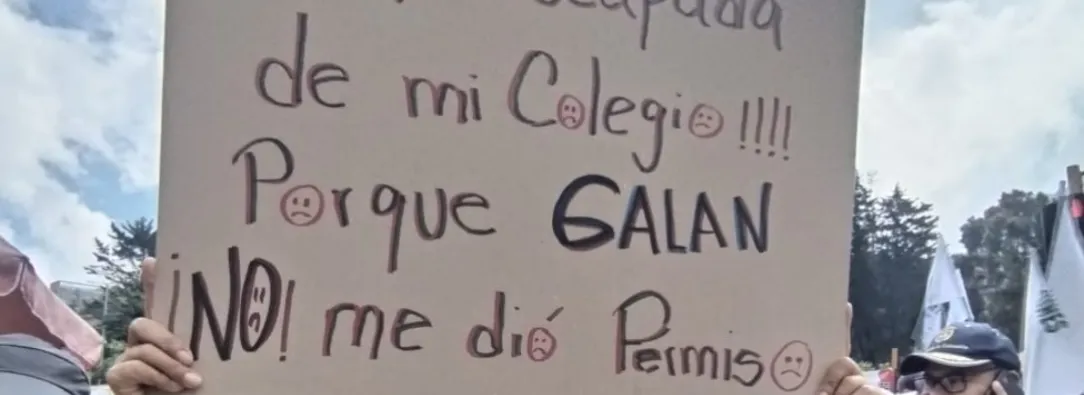 de mi Colegio!!!!
Porque GALAN
¡NO! me dió Permiso